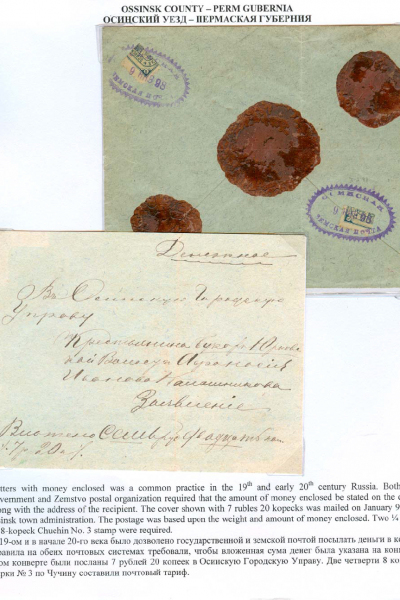 OSSINSK COUNTY – PERM GUBERNIA
ОСИНСКИЙ УЕЗД – ПЕРМАСКАЯ ГУБЕРНИЯ
ЗЕМСКАЯ ПОЧТА
ЗЕМСКАЯ ПОЧТА
Денежное
Въ Осинскую Городскую
Управу
Крестьянина
Заявленіе
Вложено семь руб двадцать коп
7 р. 20 к.
tters with money enclosed was a common practice in the 19th and early 20th century Russia. Both
vernment and Zemstvo postal organization required that the amount of money enclosed be stated on the c
ong with the address of the recipient. The cover shown with 7 rubles 20 kopecks was mailed on January 9
sinsk town administration. The postage was based upon the weight and amount of money enclosed. Two ¼
8-kopeck Chuchin No. 3 stamp were required.
19-ом и в начале 20-го века было дозволено государственной и земской почтой посылать деньги в ко
равила на обеих почтовых системах требовали, чтобы вложенная сума денег была указана на конв
ом конверте были посланы 7 рублей 20 копеек в Осинскую Городскую Управу. Две четверти 8 ко
арки № 3 по Чучину составили почтовый тариф.